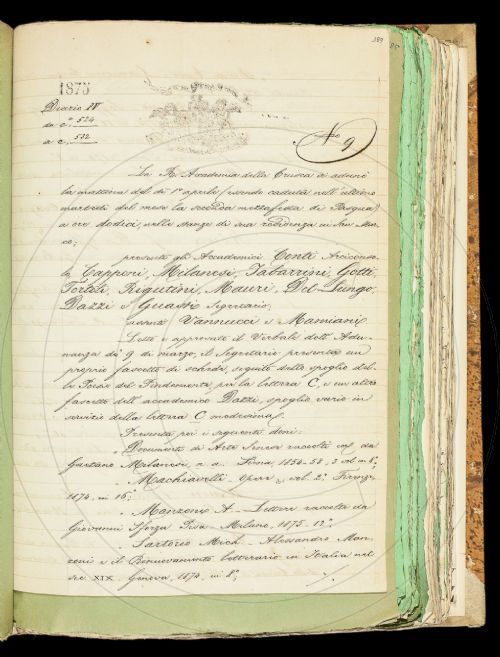 1875
Diario IV
da c. 524
a c. 532
N.º 9
La R. Accademia della Crusca si adunò
la mattina del dì 1º aprile, essendo caduta nell'ultimo
martedì del mese la seconda mezzafesta di Pasqua,
a ore dodici, nelle stanze di sua residenza in San Mar-
co;
presenti gli Accademici Conti Arciconso-
lo, Capponi, Milanesi, Tabarrini, Gotti,
Tortoli, Rigutini, Mauri, Del-Lungo,
Dazzi e Guasti Segretario;
assenti Vannucci e Mamiani.
Letto e approvato il Verbale dell'Adu-
nanza de' 9 di marzo, il Segretario presenta un
proprio fascetto di schede, seguito dello spoglio del-
le Poesie del Pindemonte per la lettera C, e un altro
fascetto dell'accademico Dazzi, spoglio vario in
servizio della lettera C medesima.
Presenta poi i seguenti doni:
Documenti di Arte Senese raccolti da
Gaetano Milanesi, Siena, 1854-58, 3 vol. in 8º;
Machiavelli - Opere vol. 2º Firenze,
1874, in 16º;
Manzoni A. - Lettere raccolte da
Giovanni Sforza Pisa - Milano, 1875, 12º,
Sartorio Mich. - Alessandro Man-
zoni e il Rinnovamento letterario in Italia nel
sec. XIX. Genova, 1874, in 8º;